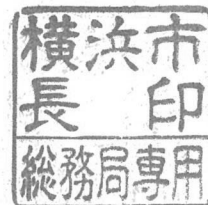 横浜市
長印
総務局専用